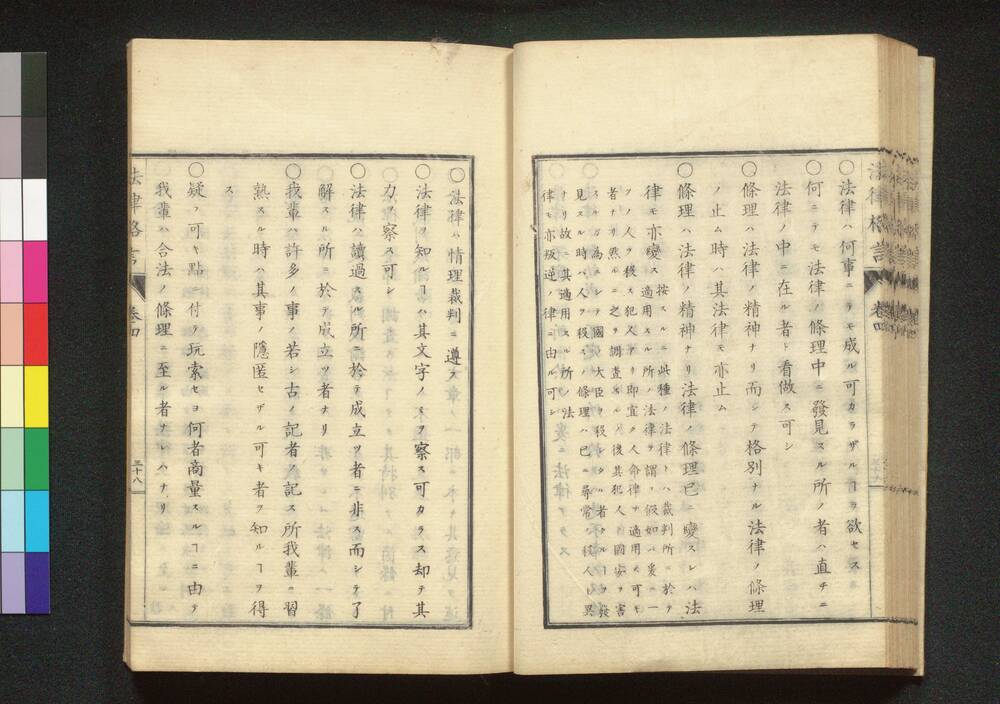 法律格言
卷四
○法律ハ何事ニテモ成ル可カラザルヿヲ欲セス
○何ニテモ法律ノ條理中ニ發見スル所ノ者ハ直チニ
法律ノ中ニ在ル者ト看做ス可シ
○條理ハ法律ノ精神ナリ而シテ格別ナル法律ノ條理
ノ止ム時ハ其法律モ亦止ム
○條理ハ法律ノ精神ナリ法律ノ條理已ニ變スレハ法
律モ亦變ス 按スルニ此種ノ法律トハ裁判所ニ於テ
適用スル所ノ法律ヲ謂フ假如ハ爰ニ一
ノ人ヲ殺ス犯人アリ即宜ク人命律ヲ適用ス可キ
者ナリ然ルニ之ヲ調査スルノ後其犯人ハ國家ヲ害
スルガ爲メシテ國ノ大臣ヲ殺シタル者タルヿヲ發
見スル時ハ人ヲ殺スノ條理ハ已ニ尋常ノ殺人ト異
ナリ故ニ其適用スル所ノ法
律モ亦叛逆ノ律ニ由ル可シ
○法律ハ情理裁判ニ遵フ
○法律ヲ知ルヿハ其文字ノミヲ察ス可カラス却テ其
力ヲ察ス可シ
○法律ハ讀過スル所ニ於テ成立ツ者ニ非ス而シテ了
解スル所ニ於テ成立ツ者ナリ
○我輩ハ許多ノ事ノ若シ古ノ記者ノ記ス所我輩ニ習
熟スル時ハ其事ノ隱匿セザル可キ者ヲ知ルヿヲ得
ス
○疑フ可キ點ニ付ノ玩索セヨ何者商量スルヿニ由テ
我輩ハ合法ノ條理ニ至ル者ナレハナリ
法律格言
卷四
三十八